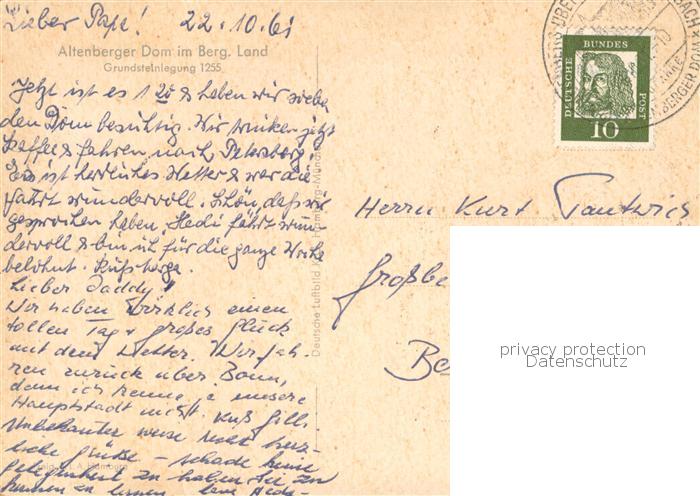 Lieber Papa! 22.10.61
Altenberger Dom im Berg. Land
Grundsteinlegung 1255
Jetzt ist es 1 20 & haben wir soeben
den Dom besichtigt. Wir trinken jetzt
Kaffee & fahren nach Petersberg.
Es ist herrliches Wetter & war die
Fahrt wundervoll. Schön, daß wir
gesprochen haben. Hedi fährt wun-
dervoll & bin ich für die ganze Woche
belohnt.
Lieber Daddy!
Wir haben wirklich einen
tollen Tag & großes Glück
mit dem Wetter. Wir fah-
ren zurück über Bonn,
denn ich kenne ja unsere
Hauptstadt nicht. Kuß Gilli.
Unbekannter weise recht herz-
liche Grüße – schade keine
gelegenheit zu haben Sie zu
kennen zu lernen
Deutsche Luftbild
DEUTSCHE BUNDES POST
10
BERGER DOM
Herrn Kurt
Großbe
Be
privacy protection
Datenschutz